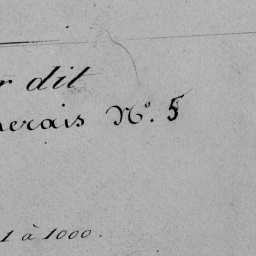 r dit
nerais N°. 5
1 à 1000.